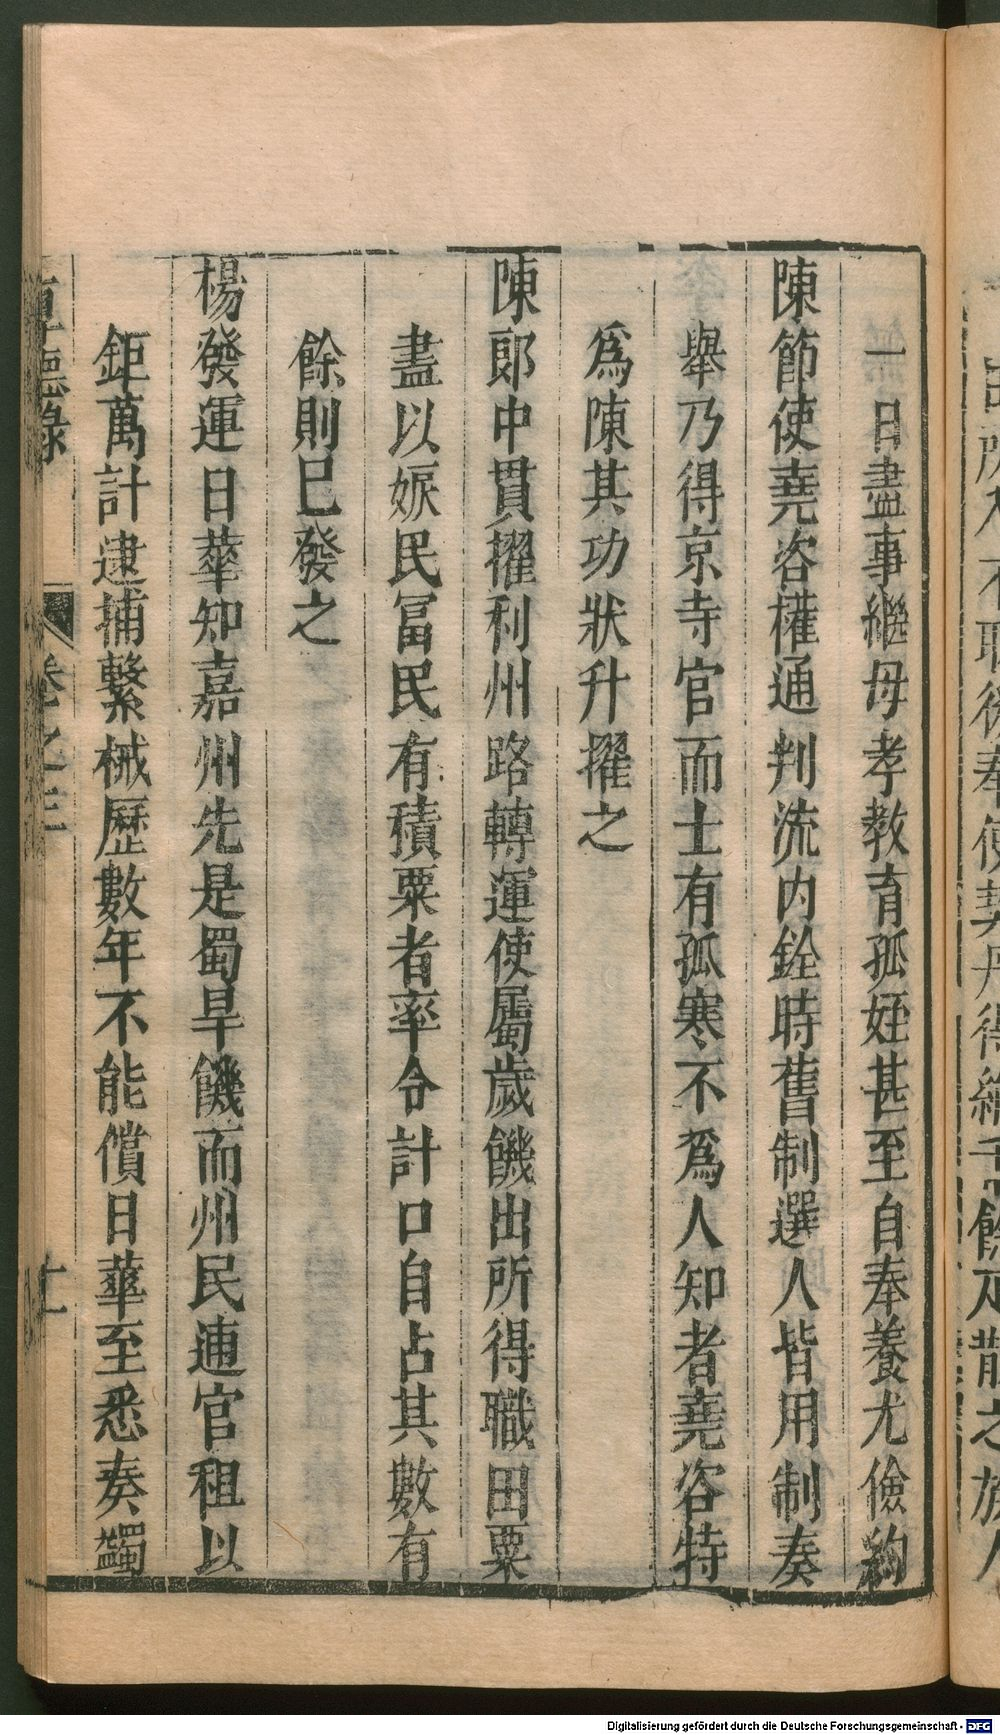 一日盡事繼母孝教育孤姪甚至自奉養尤儉約
陳節使堯咨權通判流内銓時舊制選人皆用制奏
舉乃得京寺官而士有孤寒不爲人知者堯咨特
爲陳其功狀升擢之
陳郎中貫擢利州路轉運使屬歲饑出所得職田粟
盡以賑民冨民有積粟者率令計口自占其數有
餘則巳發之
楊發運日華知嘉州先是蜀旱饑而州民逋官租以
鉅萬計逮捕繫械歷數年不能償日華至悉奏蠲
厚德錄
卷之三
十
Digitalisierung gefördert durch die Deutsche Forschungsgemeinschaft - DFG